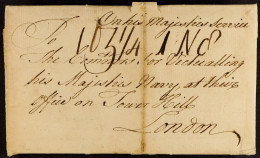 On his Majestys Service
To
The Comrs. for Victualling
his Majestys Navy, at their
Office on Tower Hill
London